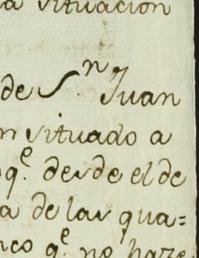 a situacion
de S.n Juan
n situado a
q.e desde el de
a de las qua=
nco q.e no hare